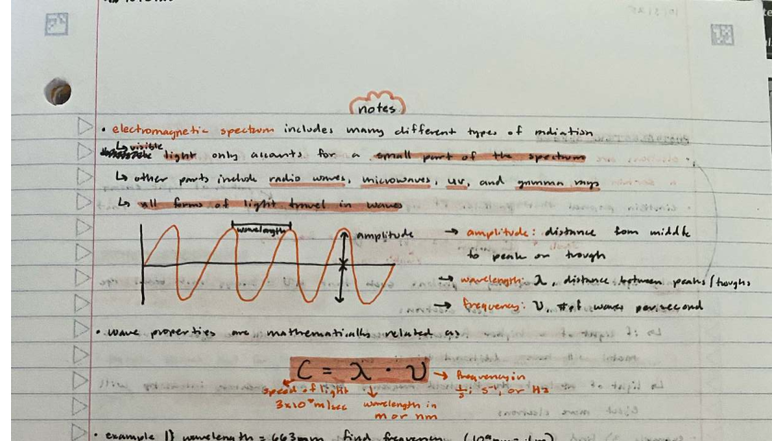 notes
• electromagnetic spectrum includes many different types of radiation
↳ visible light only accounts for a small part of the spectrum
↳ other parts include radio waves, microwaves, UV, and gamma rays
↳ all forms of light travel in waves
wavelength
amplitude
→ amplitude: distance from middle to peak or trough
→ wavelength: λ, distance between peaks/troughs
→ frequency: ν, # of waves per second
• wave properties are mathematically related as
C = λ · ν
speed of light
wavelength in m or nm
→ frequency in
s⁻¹, or Hz
• example 1} wavelength = 663nm find frequency